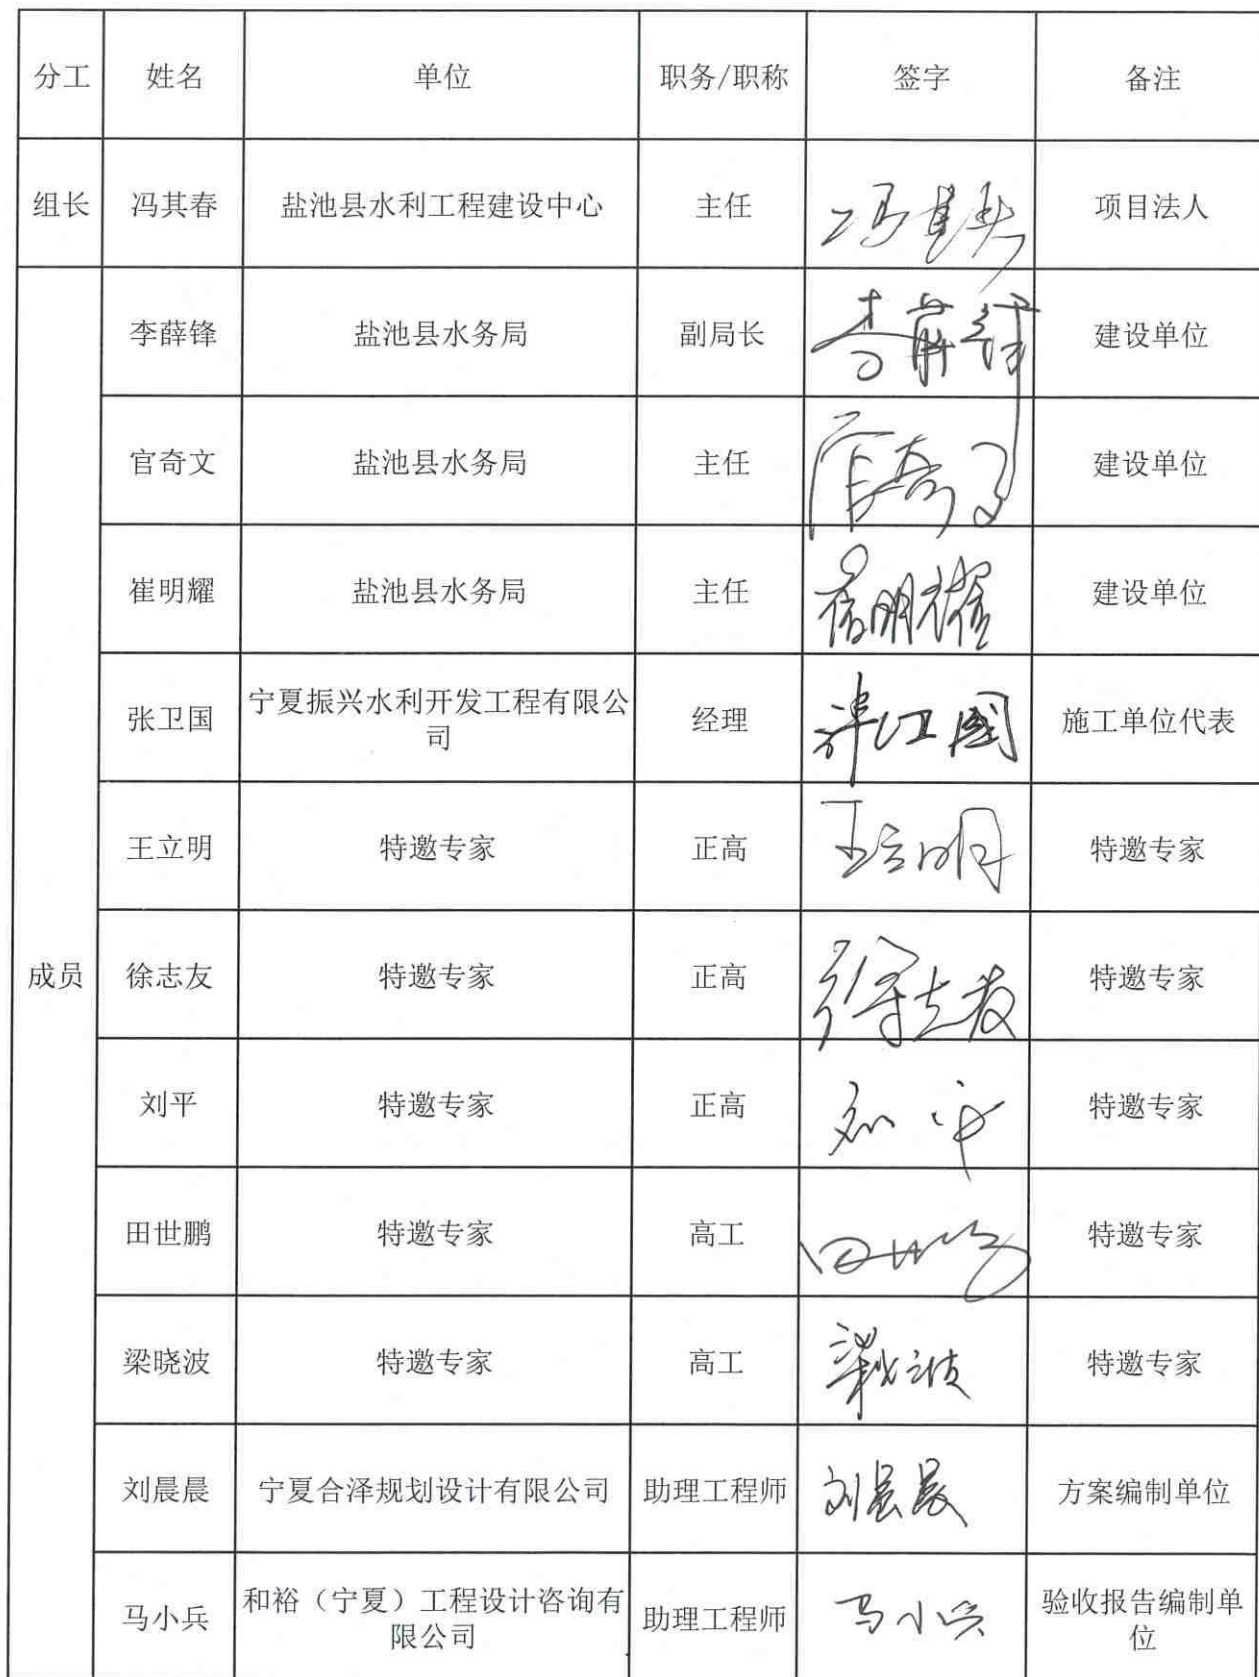 分工 姓名 单位 职务/职称 签字 备注
组长 冯其春 盐池县水利工程建设中心 主任 冯其春 项目法人
李薛锋 盐池县水务局 副局长 李薛锋 建设单位
官奇文 盐池县水务局 主任 官奇文 建设单位
崔明耀 盐池县水务局 主任 崔明耀 建设单位
张卫国 宁夏振兴水利开发工程有限公
司 经理 张卫国 施工单位代表
王立明 特邀专家 正高 王立明 特邀专家
成员 徐志友 特邀专家 正高 徐志友 特邀专家
刘平 特邀专家 正高 刘平 特邀专家
田世鹏 特邀专家 高工 田世鹏 特邀专家
梁晓波 特邀专家 高工 梁晓波 特邀专家
刘晨晨 宁夏合泽规划设计有限公司 助理工程师 刘晨晨 方案编制单位
马小兵 和裕（宁夏）工程设计咨询有
限公司 助理工程师 马小兵 验收报告编制单
位